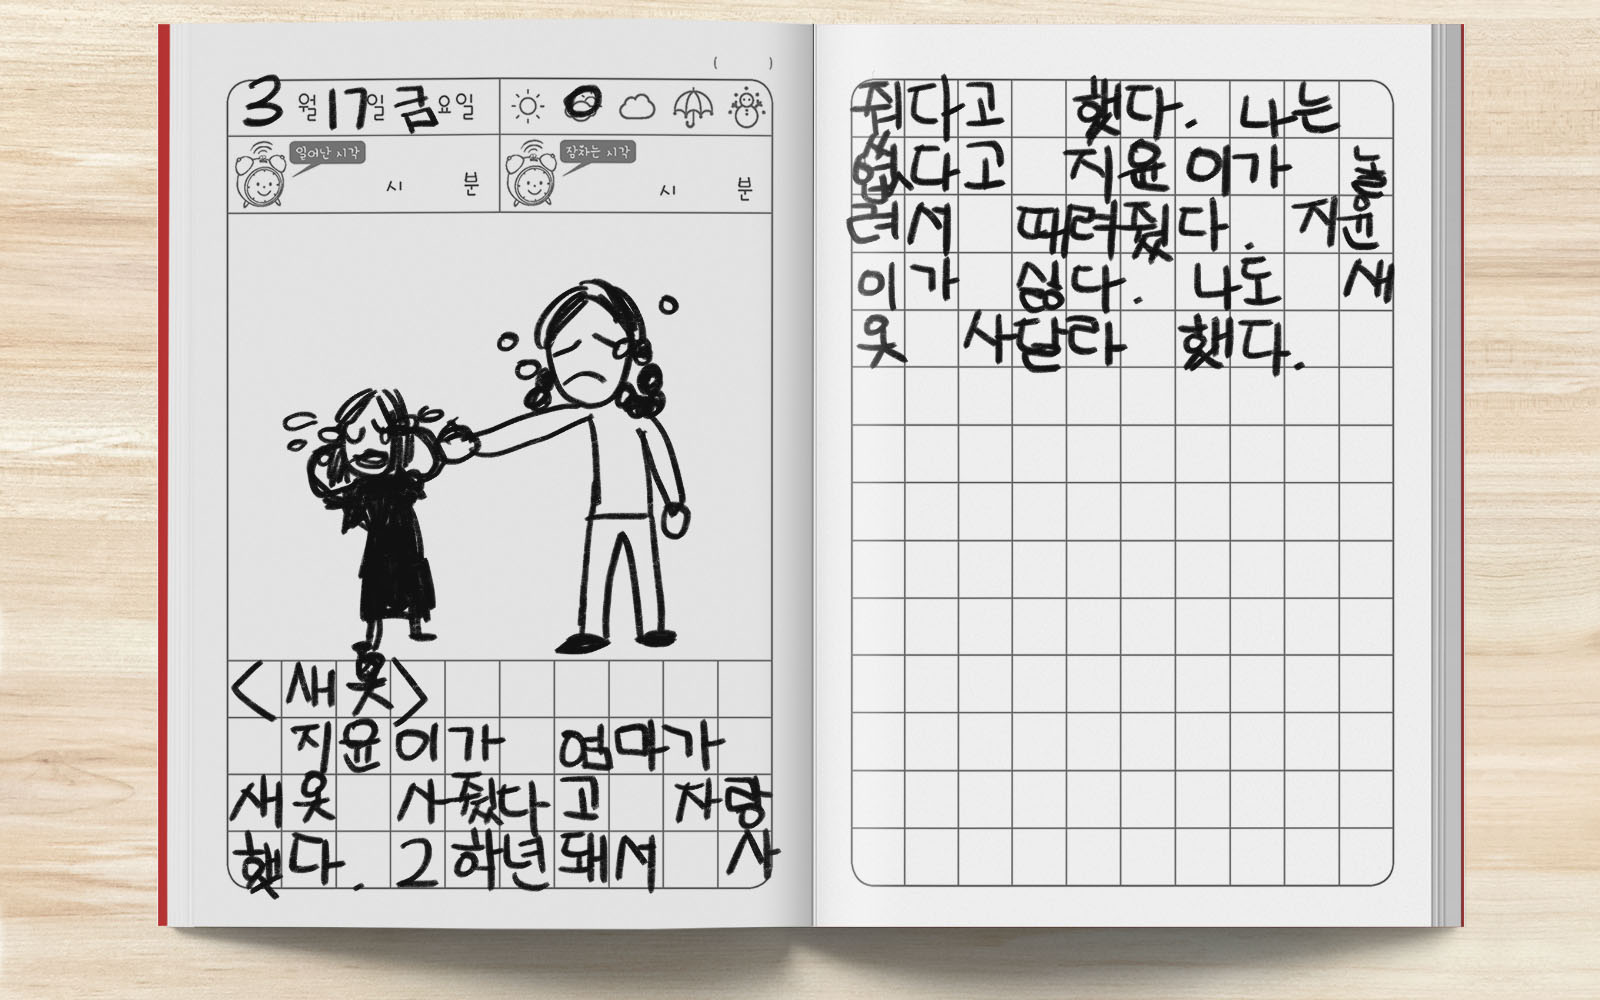 (          )
3월 17일 금요일
일어난 시각 시 분 잠자는 시각 시 분
<새 옷>
지윤이가 엄마가
새옷 사줬다고 자랑
했다. 2학년돼서 사
줬다고 했다. 나는
없다고 지윤이가 놀
려서 때려줬다. 지윤
이가 싫다. 나도 새
옷 사달라 했다.